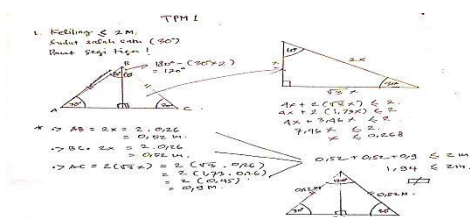 TPM 1
1. Keliling ≤ 2M.
Sudut salah satu (30°)
Buat segi tiga !
B
180° - (30°×2)
= 120°
A
30°
C.
60°
2x
x
30°
√3 x
4x + 2 (√3 x) ≤ 2
4x + 2 (1,73x) ≤ 2
4x + 3,46x ≤ 2
7,46x ≤ 2
x ≤ 0,268
* => AB = 2x = 2. 0,26
= 0,52 m.
=> BC = 2x = 2. 0,26
= 0,52 m.
=> AC = 2(√3 x) = 2 (√3 . 0,26)
= 2 (1,73. 0,26)
= 2 (0,45)
= 0,9 M.
0,52 + 0,52 + 0,9 ≤ 2 m
1,94 ≤ 2 m.
120°
0,52M
0,52M.
30°
30°